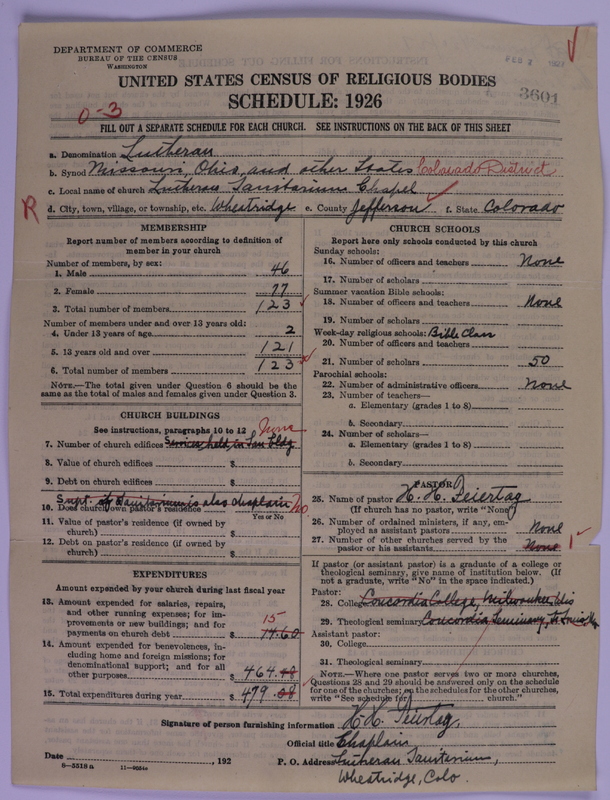 DEPARTMENT OF COMMERCE
BUREAU OF THE CENSUS
WASHINGTON
FEB 2 1927
3601
UNITED STATES CENSUS OF RELIGIOUS BODIES
SCHEDULE: 1926
0-3
FILL OUT A SEPARATE SCHEDULE FOR EACH CHURCH. SEE INSTRUCTIONS ON THE BACK OF THIS SHEET
a. Denomination Lutheran
b. Synod Missouri, Ohio, and other States Colorado District
c. Local name of church Lutheran Sanitarium Chapel
R d. City, town, village, or township, etc. Wheatridge e. County Jefferson f. State Colorado
MEMBERSHIP
Report number of members according to definition of
member in your church
Number of members, by sex:
1. Male 46
2. Female 77
3. Total number of members 123
Number of members under and over 13 years old:
4. Under 13 years of age 2
5. 13 years old and over 121
6. Total number of members 123
NOTE.—The total given under Question 6 should be the
same as the total of males and females given under Question 3.
CHURCH BUILDINGS
See instructions, paragraphs 10 to 12
7. Number of church edifices Services held in San Bldg
8. Value of church edifices $
9. Debt on church edifices $
Supt. of Sanitarium is also chaplain
10. Does church own pastor's residence No
Yes or No
11. Value of pastor's residence (if owned by
church) $
12. Debt on pastor's residence (if owned by
church) $
EXPENDITURES
Amount expended by your church during last fiscal year
13. Amount expended for salaries, repairs,
and other running expenses; for im-
provements or new buildings; and for
payments on church debt $ 14.60 15
14. Amount expended for benevolences, in-
cluding home and foreign missions; for
denominational support; and for all
other purposes $ 464.48
15. Total expenditures during year $ 479.08
CHURCH SCHOOLS
Report here only schools conducted by this church
Sunday schools:
16. Number of officers and teachers None
17. Number of scholars
Summer vacation Bible schools:
18. Number of officers and teachers None
19. Number of scholars
Week-day religious schools: Bible Class
20. Number of officers and teachers
21. Number of scholars 50
Parochial schools:
22. Number of administrative officers None
23. Number of teachers—
a. Elementary (grades 1 to 8)
b. Secondary
24. Number of scholars—
a. Elementary (grades 1 to 8)
b. Secondary
PASTOR
25. Name of pastor H. H. Feiertag
(If church has no pastor, write "None")
26. Number of ordained ministers, if any, em-
ployed as assistant pastors None
27. Number of other churches served by the
pastor or his assistants None 1
If pastor (or assistant pastor) is a graduate of a college or
theological seminary, give name of institution below. (If
not a graduate, write "No" in the space indicated.)
Pastor:
28. College Concordia College, Milwaukee, Wis
29. Theological seminary Concordia Seminary, St Louis Mo
Assistant pastor:
30. College
31. Theological seminary
NOTE.—Where one pastor serves two or more churches,
Questions 28 and 29 should be answered only on the schedule
for one of the churches; on the schedules for the other churches,
write "See schedule for church."
Signature of person furnishing information H. H. Feiertag,
Official title Chaplain
Date , 192 P. O. Address Lutheran Sanitarium,
8—5518a 11—9551a Wheatridge, Colo.